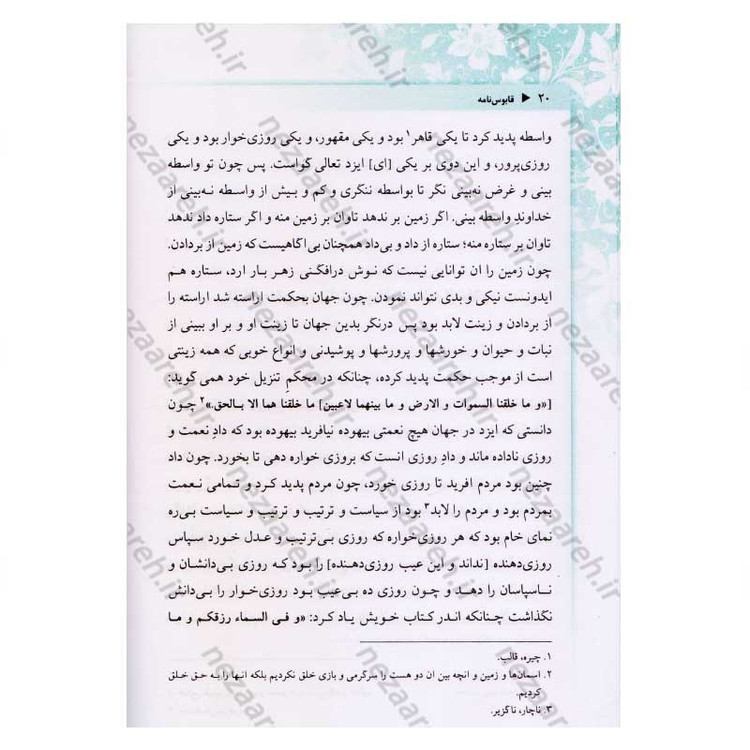 ۲۰ ◀ قابوس‌نامه
واسطه پدید کرد تا یکی قاهر۱ بود و یکی مقهور، و یکی روزی‌خوار بود و یکی
روزی‌پرور، و این دوی بر یکی [ای] ایزد تعالی گواست. پس چون تو واسطه
بینی و غرض نه‌بینی نگر تا بواسطه ننگری و کم و بیش از واسطه نه‌بینی از
خداوند واسطه بینی. اگر زمین بر ندهد تاوان بر زمین منه و اگر ستاره داد ندهد
تاوان بر ستاره منه؛ ستاره از داد و بی‌داد همچنان بی‌اگاهیست که زمین از بردادن.
چون زمین را ان توانایی نیست که نوش درافگنی زهر بار ارد، ستاره هم
ایدونست نیکی و بدی نتواند نمودن. چون جهان بحکمت اراسته شد اراسته را
از بردادن و زینت لابد بود پس درنگر بدین جهان تا زینت او و بر او ببینی از
نبات و حیوان و خورشها و پرورشها و پوشیدنی و انواع خوبی که همه زینتی
است از موجب حکمت پدید کرده، چنانکه در محکمِ تنزیل خود همی گوید:
[«و ما خلقنا السموات و الارض و ما بینهما لاعبین] ما خلقنا هما الا بالحق.»۲ چون
دانستی که ایزد در جهان هیچ نعمتی بیهوده نیافرید بیهوده بود که دادِ نعمت و
روزی ناداده ماند و دادِ روزی انست که بروزی خواره دهی تا بخورد. چون داد
چنین بود مردم افرید تا روزی خورد، چون مردم پدید کرد و تمامی نعمت
بمردم بود و مردم را لابد۳ بود از سیاست و ترتیب و ترتیب و سیاست بی‌ره
نمای خام بود که هر روزی‌خواره که روزی بی‌ترتیب و عدل خورد سپاس
روزی‌دهنده [نداند و این عیب روزی‌دهنده] را بود که روزی بی‌دانشان و
ناسپاسان را دهد و چون روزی ده بی‌عیب بود روزی‌خوار را بی‌دانش
نگذاشت چنانکه اندر کتاب خویش یاد کرد: «و فی السماء رزقکم و ما
۱. چیره، قالب.
۲. اسمان‌ها و زمین و انچه بین ان دو هست را سرگرمی و بازی خلق نکردیم بلکه انها را به حق خلق
کردیم.
۳. ناچار، ناگزیر.
nezaareh.ir